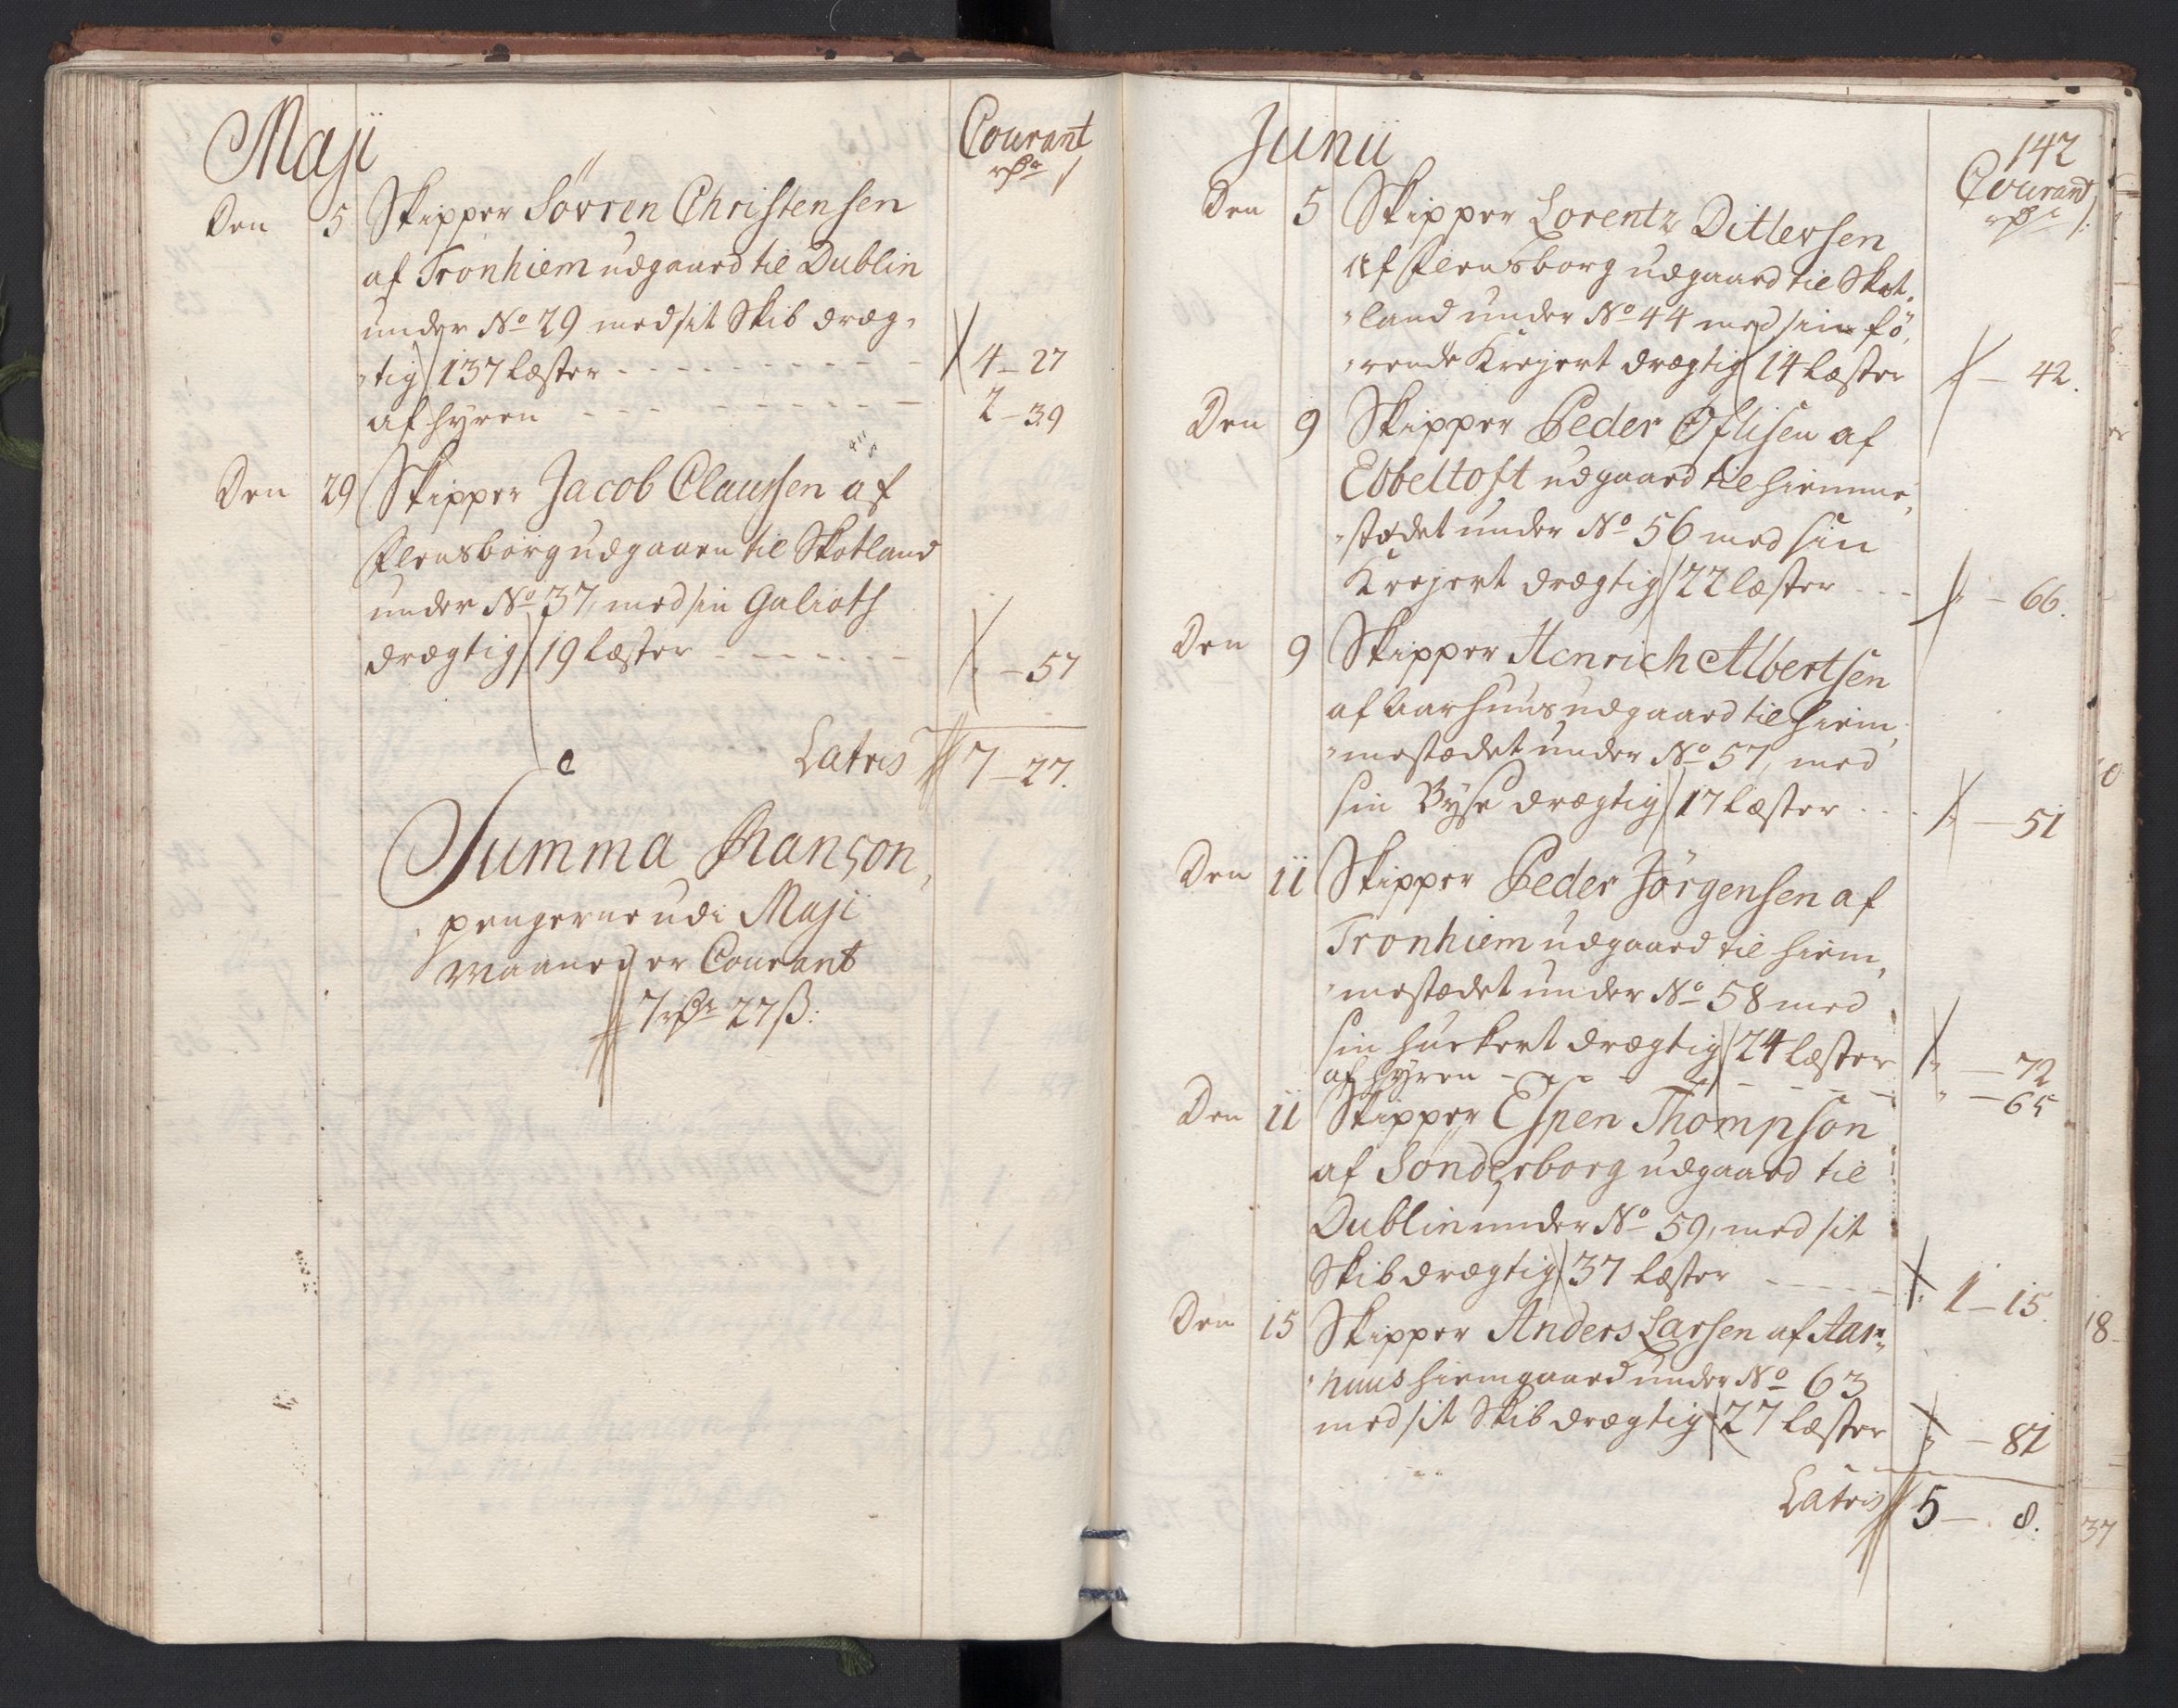 Maji
Courant
rdr ß
Den 5 Skipper Sövren Christensen
af Tronhiem udgaaed til Dublin
under No 29 med sit Skib dræg-
-tig 137 læster - - - 4 - 27
af hyren - - - 2 - 39
Den 29 Skipper Jacob Claussen af
Flensborg udgaaen til Skotland
under No 37, med sin Galioth
drægtig 19 læster - - - „ - 57
Latris 7 - 27.
Summa Rançon,
pengerne udi Maji
Maaned er Courant
7 rdr 27 ß:
Junii
142
Courant
rdr ß:
Den 5 Skipper Lorentz Ditlevsen
af Flensborg udgaaed til Skot-
-land under No 44 med sin fö-
-rende Krejert drægtig 14 læster „ - 42.
Den 9 Skipper Peder Öflisen af
Ebbeltoft udgaaed til hiemme-
-stædet under No 56 med sin
Krejert drægtig 22 læster - - - „ - 66.
Den 9 Skipper Henrich Albertsen
af Aarhuus udgaaed til hiem-
-mestædet under No 57, med
sin Byse drægtig 17 læster . . . „ - 51
Den 11 Skipper Peder Jörgensen af
Tronhiem udgaaed til hiem-
-mestædet under No 58 med
sin huckert drægtig 24 læster „ - 72
af hyren - - - „ - 65
Den 11 Skipper Espen Thompson
af Sönderborg udgaaed til
Dublin under No 59, med sit
Skib drægtig 37 læster - - - 1 - 15.
Den 15 Skipper Anders Larsen af Aar-
-huus hiemgaaed under No 63
med sit Skib drægtig 27 læster „ - 81
Latris 5 - 8.